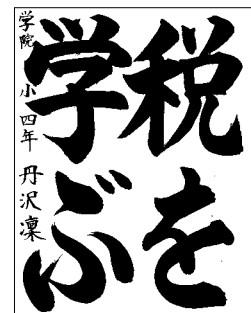 税を
学ぶ
学院 小四年 丹沢凜